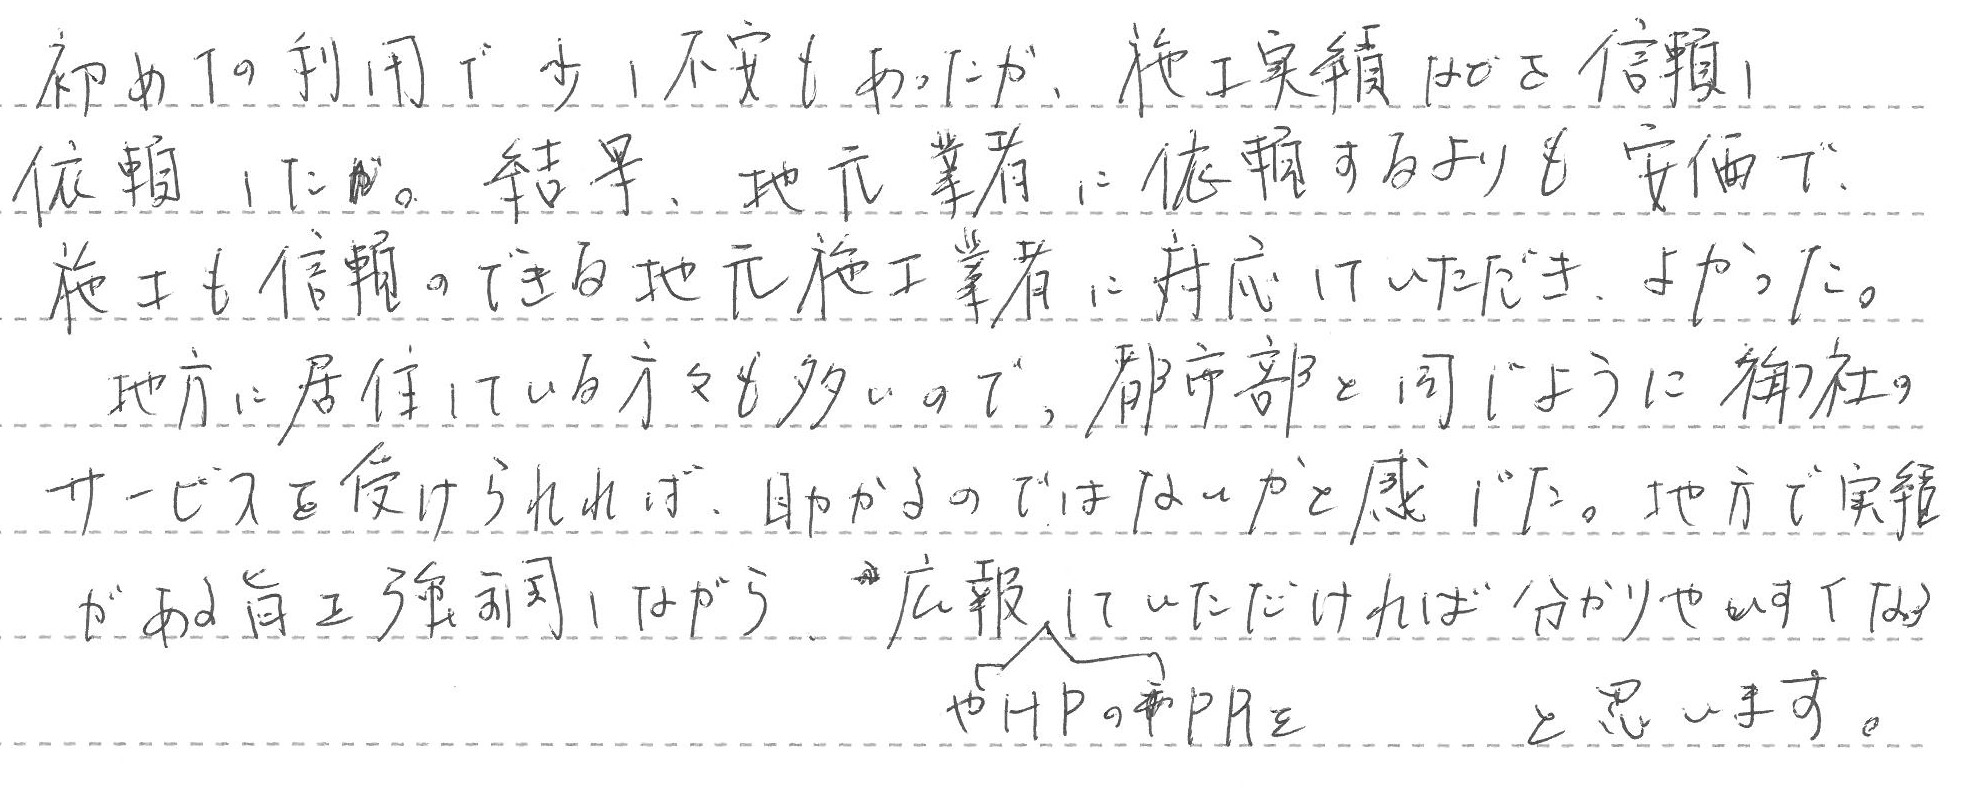 初めての利用で少し不安もあったが、施工実績などを信頼し
依頼した。結果、地元業者に依頼するよりも安価で、
施工も信頼のできる地元施工業者に対応していただき、よかった。
地方に居住している方々も多いので、都市部と同じように御社の
サービスを受けられれば、助かるのではないかと感じた。地方で実績
がある旨を強調しながら、広報していただければ分かりやすくなる
やHPのPRを
と思います。